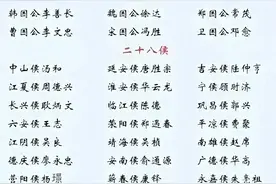 韩国公李善长 魏国公徐达 郑国公常茂
曹国公李文忠 宋国公冯胜 卫国公邓愈
二十八侯
中山侯汤和 延安侯唐胜宗 吉安侯陆仲亨
江夏侯周德兴 淮安侯华云龙 宁侯顾时济
长兴侯耿炳文 临江侯陈德 巩昌侯郭兴
六安侯王志 荥阳侯郑遇春 平凉侯费聚
江阴侯吴良 靖海侯吴桢 南雄侯赵庸
德庆侯廖永忠 安南侯俞通源 广德侯华高
营阳侯杨璟 蕲春侯康铎 永嘉侯朱亮祖